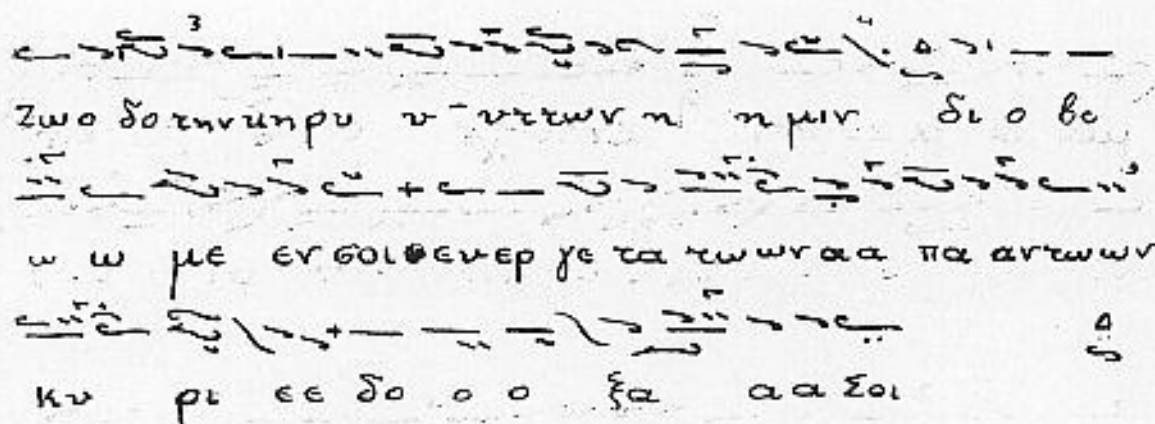 Ζωο δο την κη ρυ υ υτ των η η μιν δι ο βο
ω ω με εν σοι ευερ γε τα τω ων α α πα αν τω ων
Κυ ρι ε ε δο ο ο ξα α α Σοι